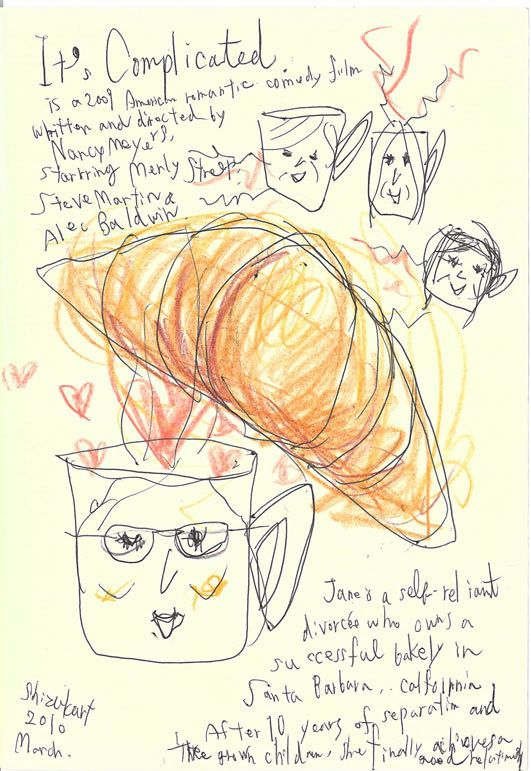 It's Complicated
is a 2009 American romantic comedy film
written and directed by
Nancy Meyers,
starring Merly Streep,
Steve Martin &
Alec Baldwin.
Jane is a self-reliant
divorcée who owns a
successful bakely in
Santa Barbara, . calfoinnia,
After 10 years of separatim and
three grown children, she finally achieves a
good relationship
Shizukart
2010
March.